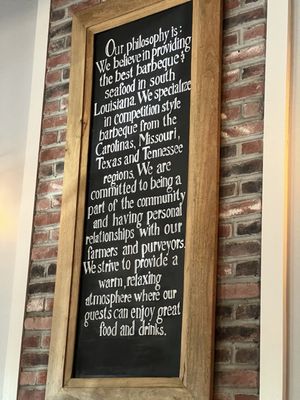 Our philosophy is:
We believe in providing
the best barbeque &
seafood in south
Louisiana. We specialize
in competition style
barbeque from the
Carolinas, Missouri,
Texas and Tennessee
regions. We are
committed to being a
part of the community
and having personal
relationships with our
farmers and purveyors.
We strive to provide a
warm, relaxing
atmosphere where our
guests can enjoy great
food and drinks.